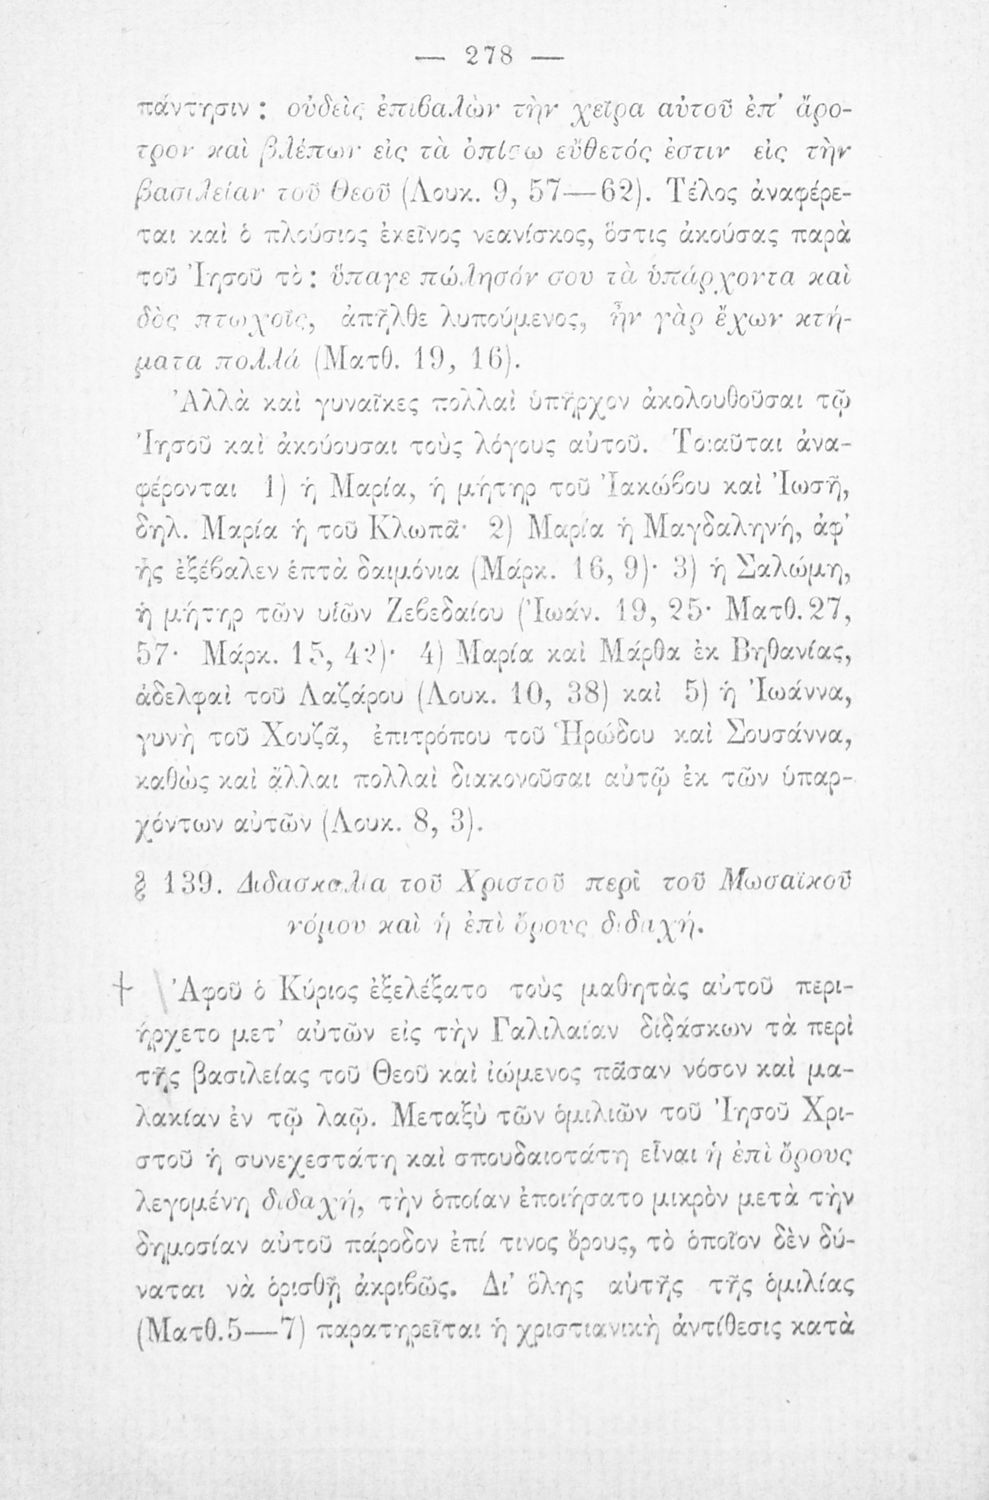 — 278 —
πάντησιν : οὐδεὶς ἐπιβαλὼν τὴν χεῖρα αὑτοῦ ἐπ' ἄρο-
τρον καὶ βλέπων εἰς τὰ ὀπίσω εὔθετός ἐστιν εἰς τὴν
βασιλείαν τοῦ Θεοῦ (Λουκ. 9, 57—62). Τέλος ἀναφέρε-
ται καὶ ὁ πλούσιος ἐκεῖνος νεανίσκος, ὅστις ἀκούσας παρὰ
τοῦ Ἰησοῦ τὸ : ὕπαγε πώλησόν σου τὰ ὑπάρχοντα καὶ
δὸς πτωχοῖς, ἀπῆλθε λυπούμενος, ἦν γὰρ ἔχων κτή-
ματα πολλά (Ματθ. 19, 16).
Ἀλλὰ καὶ γυναῖκες πολλαὶ ὑπῆρχον ἀκολουθοῦσαι τῷ
Ἰησοῦ καὶ ἀκούουσαι τοὺς λόγους αὐτοῦ. Τοιαῦται ἀνα-
φέρονται 1) ἡ Μαρία, ἡ μήτηρ τοῦ Ἰακώβου καὶ Ἰωσῆ,
δηλ. Μαρία ἡ τοῦ Κλωπᾶ· 2) Μαρία ἡ Μαγδαληνή, ἀφ'
ἧς ἐξέβαλεν ἑπτὰ δαιμόνια (Μάρκ. 16, 9)· 3) ἡ Σαλώμη,
ἡ μήτηρ τῶν υἱῶν Ζεβεδαίου (Ἰωάν. 19, 25· Ματθ. 27,
57· Μάρκ. 15, 42)· 4) Μαρία καὶ Μάρθα ἐκ Βηθανίας,
ἀδελφαὶ τοῦ Λαζάρου (Λουκ. 10, 38) καὶ 5) ἡ Ἰωάννα,
γυνὴ τοῦ Χουζᾶ, ἐπιτρόπου τοῦ Ἡρώδου καὶ Σουσάννα,
καθὼς καὶ ἄλλαι πολλαὶ διακονοῦσαι αὐτῷ ἐκ τῶν ὑπαρ-
χόντων αὐτῶν (Λουκ. 8, 3).
§ 139. Διδασκαλία τοῦ Χριστοῦ περὶ τοῦ Μωσαϊκοῦ
νόμου καὶ ἡ ἐπὶ ὄρους διδαχή.
Ἀφοῦ ὁ Κύριος ἐξελέξατο τοὺς μαθητὰς αὑτοῦ περι-
ήρχετο μετ' αὐτῶν εἰς τὴν Γαλιλαίαν διδάσκων τὰ περὶ
τῆς βασιλείας τοῦ Θεοῦ καὶ ἰώμενος πᾶσαν νόσον καὶ μα-
λακίαν ἐν τῷ λαῷ. Μεταξὺ τῶν ὁμιλιῶν τοῦ Ἰησοῦ Χρι-
στοῦ ἡ συνεχεστάτη καὶ σπουδαιοτάτη εἶναι ἡ ἐπὶ ὄρους
λεγομένη διδαχή, τὴν ὁποίαν ἐποιήσατο μικρὸν μετὰ τὴν
δημοσίαν αὐτοῦ πάροδον ἐπί τινος ὄρους, τὸ ὁποῖον δὲν δύ-
ναται νὰ ὁρισθῇ ἀκριβῶς. Δι' ὅλης αὐτῆς τῆς ὁμιλίας
(Ματθ. 5—7) παρατηρεῖται ἡ χριστιανικὴ ἀντίθεσις κατὰ